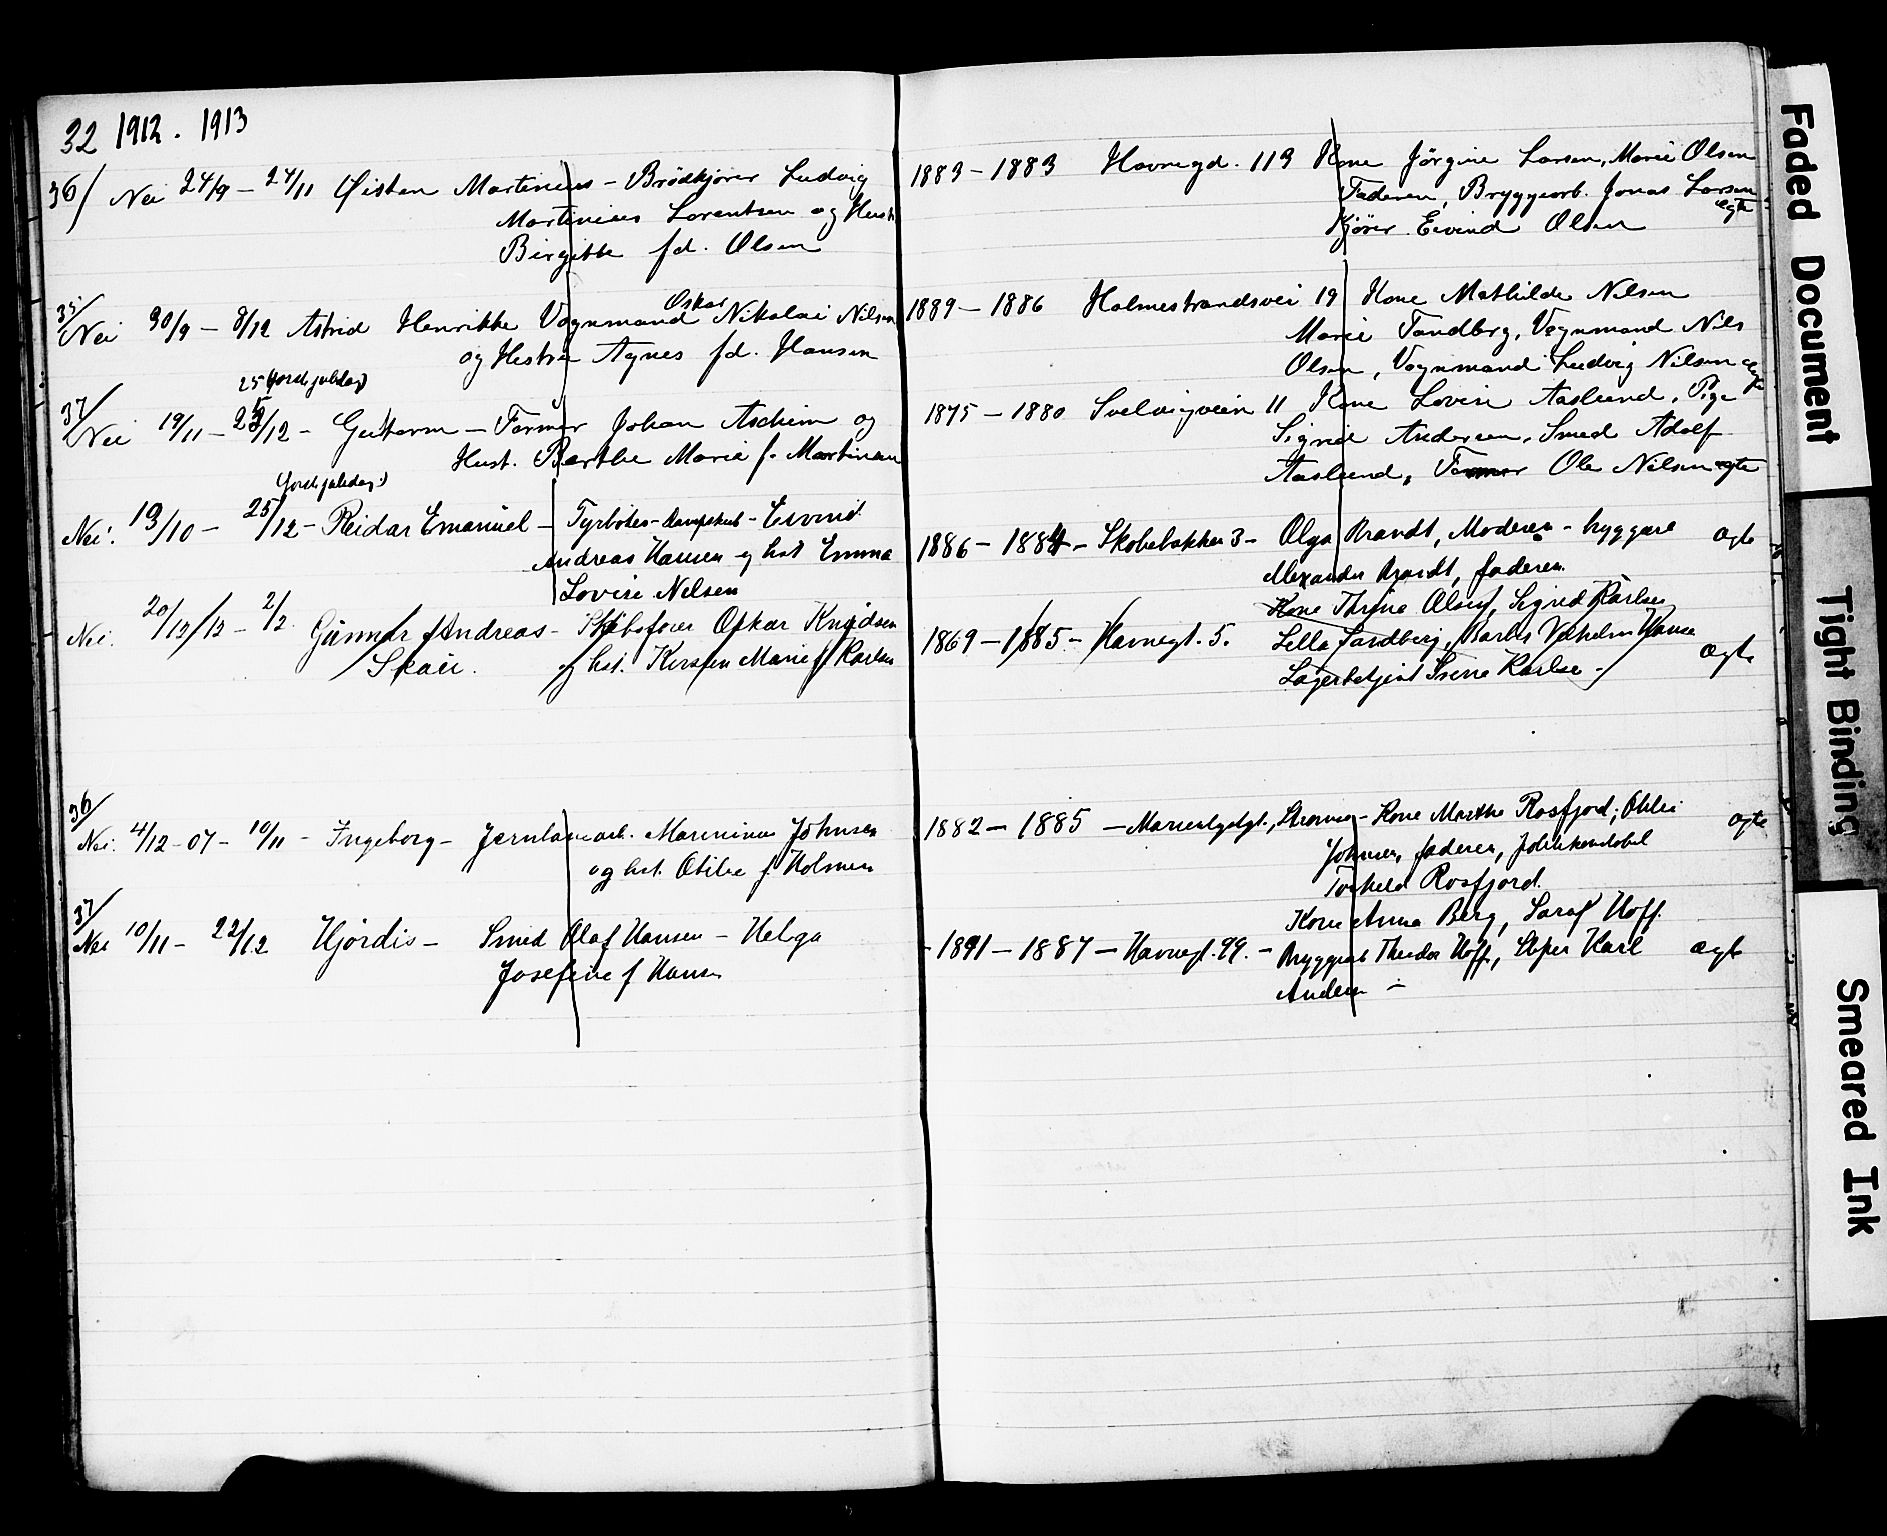 32 1912 . 1913
36/ Nei 24/9 – 24/11 Øisten Martinius – Brödkjörer Ludvig
Martinius Lorentsen og Hustr
Birgitte fd. Olsen
1883 – 1883 Havnegd. 113 Kone Jörgine Larsen, Marie Olsen
Faderen, Bryggearb. Jonas Larsen
Kjörer Eivind Olsen egte
35/ Nei 30/9 – 8/12 Astrid Henrikke Vognmand Oskar Nikolai Nilsen
og Hustru Agnes fd. Hansen
1889 – 1886 Holmestrandsvei 19 Kone Mathilde Nilsen
Marie Tandberg, Vognmand Nils
Olsen, Vognmand Ludvig Nilsen egte
25 (förstejuledag)
37/ Nei 19/11 – 25/12 – Guttorm – Former Johan Ascheim og
Hust. Barthe Marie f. Martinsen
1875 – 1880 Svelvigveien 11 Kone Lovise Aaslund, Pige
Sigrid Andersen, Smed Adolf
Aaslund, Former Ole Nilsen egte
(förstejuledag)
Nei. 19/10 – 25/12 – Reidar Emanuel – Fyrböter – Dampskib – Eivind
Andreas Hansen og hst Emma
Lovise Nelsen
1886 – 1884 – Skobebakken 3 – Olga Brandt, Moderen – byggare
Alexander Brandt, faderen ægte
Nei. 20/12/12 – 2/2 Gunnar Andreas – Skibsförer Oskar Knudsen
Skau. og hst. Kirsten Marie f Karlsen
Kone Thrine Olsen, Sigrid Karlsen
1869 – 1885 – Havnegt. 5. Lella Sandberg, Barber Vilhelm Hansen
Lagerbetjent Karlsen – ægte
36/
Nei. 4/12 – 07 – 10/11 – Ingeborg – Jernbanearb. Mareninus Johnsen
og hst. Otilie f Holmen
1882 – 1885 – Marienlystgt., Strömsö – Kone Marthe Rosfjord; Otilie
Johnsen, faderen, politikonstabel
Torkeld Rosfjord. ægte
37/
Nei 10/11 – 22/12 Hjördis – Smed Olaf Hansen – Helga
Josefine f Hansen
Kone Anna Berg, Hoff.
– 1891 – 1887 – Havnegt. 99. – Bryggearb Theodor Hoff, Karl
Andersen – ægte
Faded Document
Tight Binding
Smeared Ink